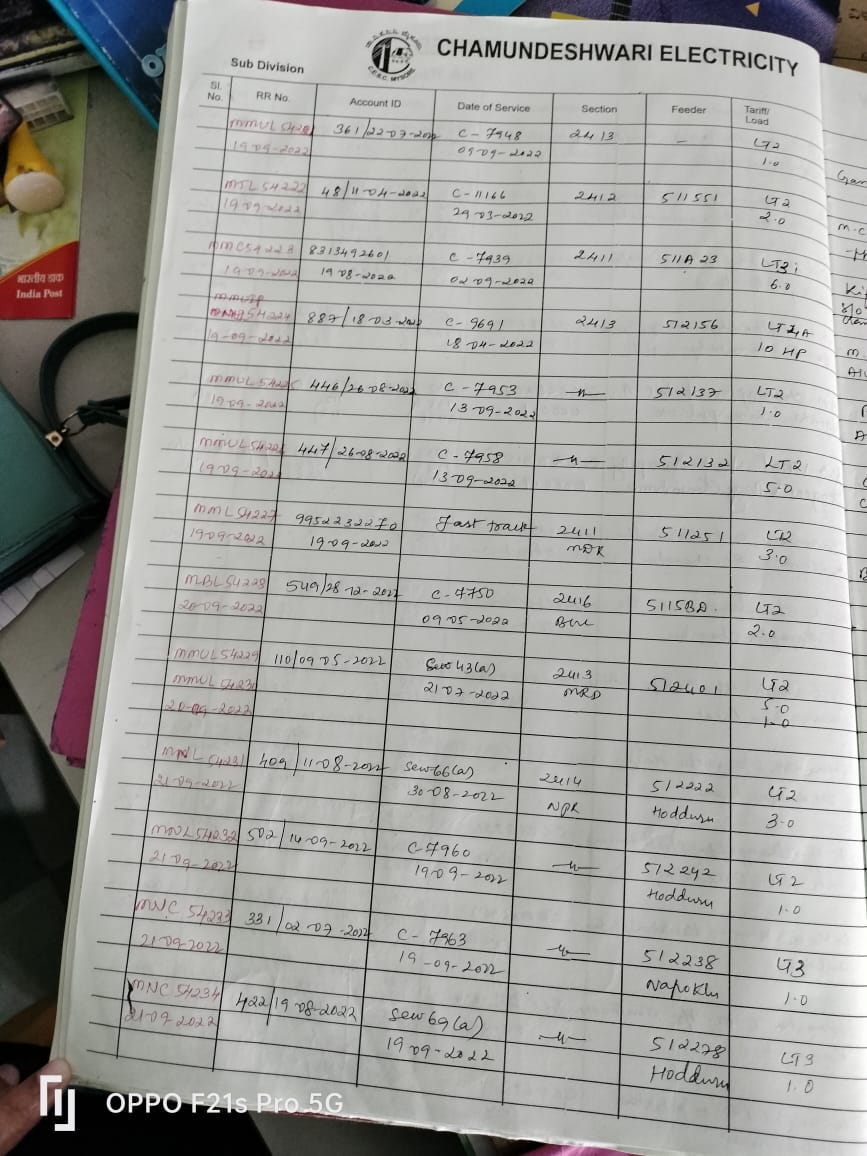 CHAMUNDESHWARI ELECTRICITY
C.E.S.C. MYSORE
Sub Division
Sl. No. RR No. Account ID Date of Service Section Feeder Tariff/ Load
361/22-07-2022 C-7948 2413 - LT2
19-09-2022 09-09-2022 1.0
MTL 54222 48/11-04-2022 C-11166 2412 511551 LT2
19-09-2022 29-03-2022 2.0
MMC54223 8313492601 C-7939 2411 511A23 LT3i
19-09-2022 19-08-2022 02-09-2022 6.0
54224 887/18-03-2022 C-9691 2413 512156
19-09-2022 18-04-2022 10 HP
MMUL 54225 446/26-08-2022 C-7953 —"— 512137 LT2
19-09-2022 13-09-2022 1.0
MMUL 54226 447/26-08-2022 C-7958 —"— 512132 LT2
19-09-2022 13-09-2022 5.0
MML 54227 9952232270 fast track 2411 511251 LT2
19-09-2022 19-09-2022 MDK 3.0
MBL 54228 549/28-12-2021 C-7750 2416 5115BD. LT2
20-09-2022 09-05-2022 2.0
MMUL 54229 110/09-05-2022 Sew 43(a) 2413 512401 LT2
MMUL 54230 21-07-2022 MRD 5.0
20-09-2022 1.0
MNL 54231 409/11-08-2022 Sew 66(a) 2414 512222 LT2
21-09-2022 30-08-2022 NPK Hodduru 3.0
MNUL 54232 502/14-09-2022 C-7960 —"— 512242 LT2
21-09-2022 19-09-2022 Hodduru 1.0
MNC 54233 331/02-07-2022 C-7963 —"— 512238 LT3
21-09-2022 19-09-2022 Napoklu 1.0
MNC 54234 422/19-08-2022 Sew 69(a) —"— 512278 LT3
21-09-2022 19-09-2022 Hodduru 1.0
भारतीय डाक
India Post
OPPO F21s Pro 5G